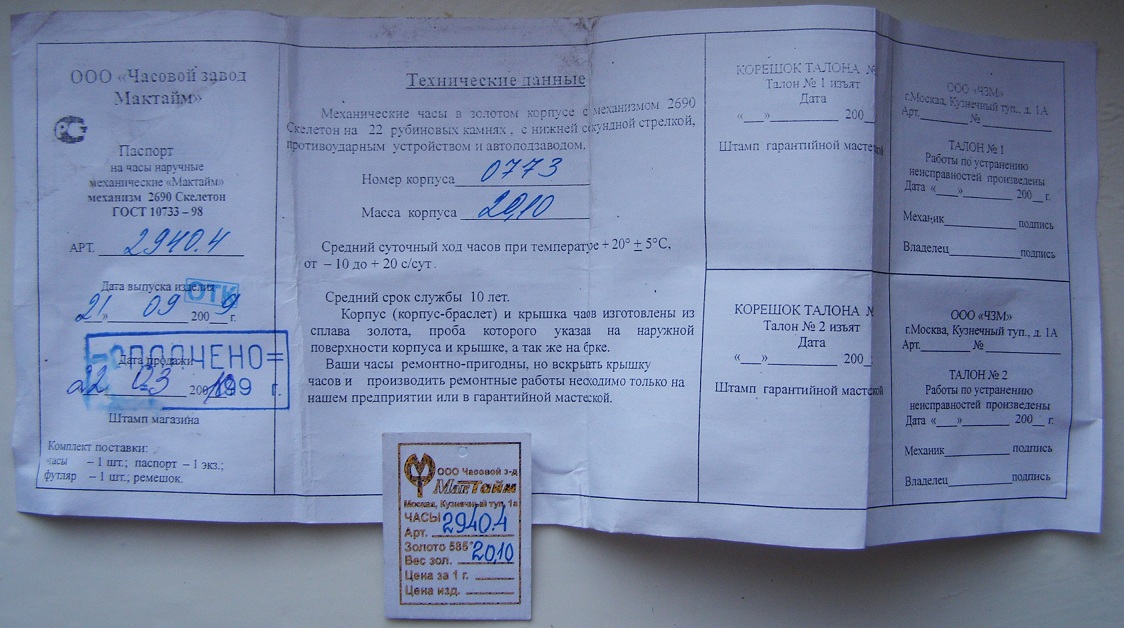 ООО «Часовой завод
Мактайм»
РСТ
Паспорт
на часы наручные
механические «Мактайм»
механизм 2690 Скелетон
ГОСТ 10733 – 98
АРТ. 2940.4
Дата выпуска изделия
ОТК
«21» 09 200 9 г.
Дата продажи
22 03 200
199 г.
Штамп магазина
Комплект поставки:
часы – 1 шт.; паспорт – 1 экз.;
футляр – 1 шт.; ремешок.
Технические данные
Механические часы в золотом корпусе с механизмом 2690
Скелетон на 22 рубиновых камнях , с нижней секундной стрелкой,
противоударным устройством и автоподзаводом.
Номер корпуса 0773
Масса корпуса 20,10
Средний суточный ход часов при температуре + 20° ± 5°С,
от – 10 до + 20 с/сут.
Средний срок службы 10 лет.
Корпус (корпус-браслет) и крышка часов изготовлены из
сплава золота, проба которого указана на наружной
поверхности корпуса и крышке, а так же на бирке.
Ваши часы ремонтно-пригодны, но вскрыть крышку
часов и производить ремонтные работы необходимо только на
нашем предприятии или в гарантийной мастеской.
КОРЕШОК ТАЛОНА №
Талон № 1 изъят
Дата
«___»__________ 200_
Штамп гарантийной мастеской
КОРЕШОК ТАЛОНА №
Талон № 2 изъят
Дата
«___»__________ 200_
Штамп гарантийной мастеской
ООО «ЧЗМ»
г.Москва, Кузнечный туп., д. 1А
Арт.________№____________
ТАЛОН № 1
Работы по устранению
неисправностей произведены
Дата «___»_________ 200__ г.
Механик____________ подпись
Владелец____________подпись
ООО «ЧЗМ»
г.Москва, Кузнечный туп., д. 1А
Арт.________ №____________
ТАЛОН № 2
Работы по устранению
неисправностей произведены
Дата «___»_________ 200__ г.
Механик___________ подпись
Владелец___________ подпись
ООО Часовой з-д
МакТайм
Москва, Кузнечный туп, 1а
ЧАСЫ
Арт. 2940.4
Золото 585°
Вес зол. 20,10
Цена за 1 г. ______
Цена изд. ______